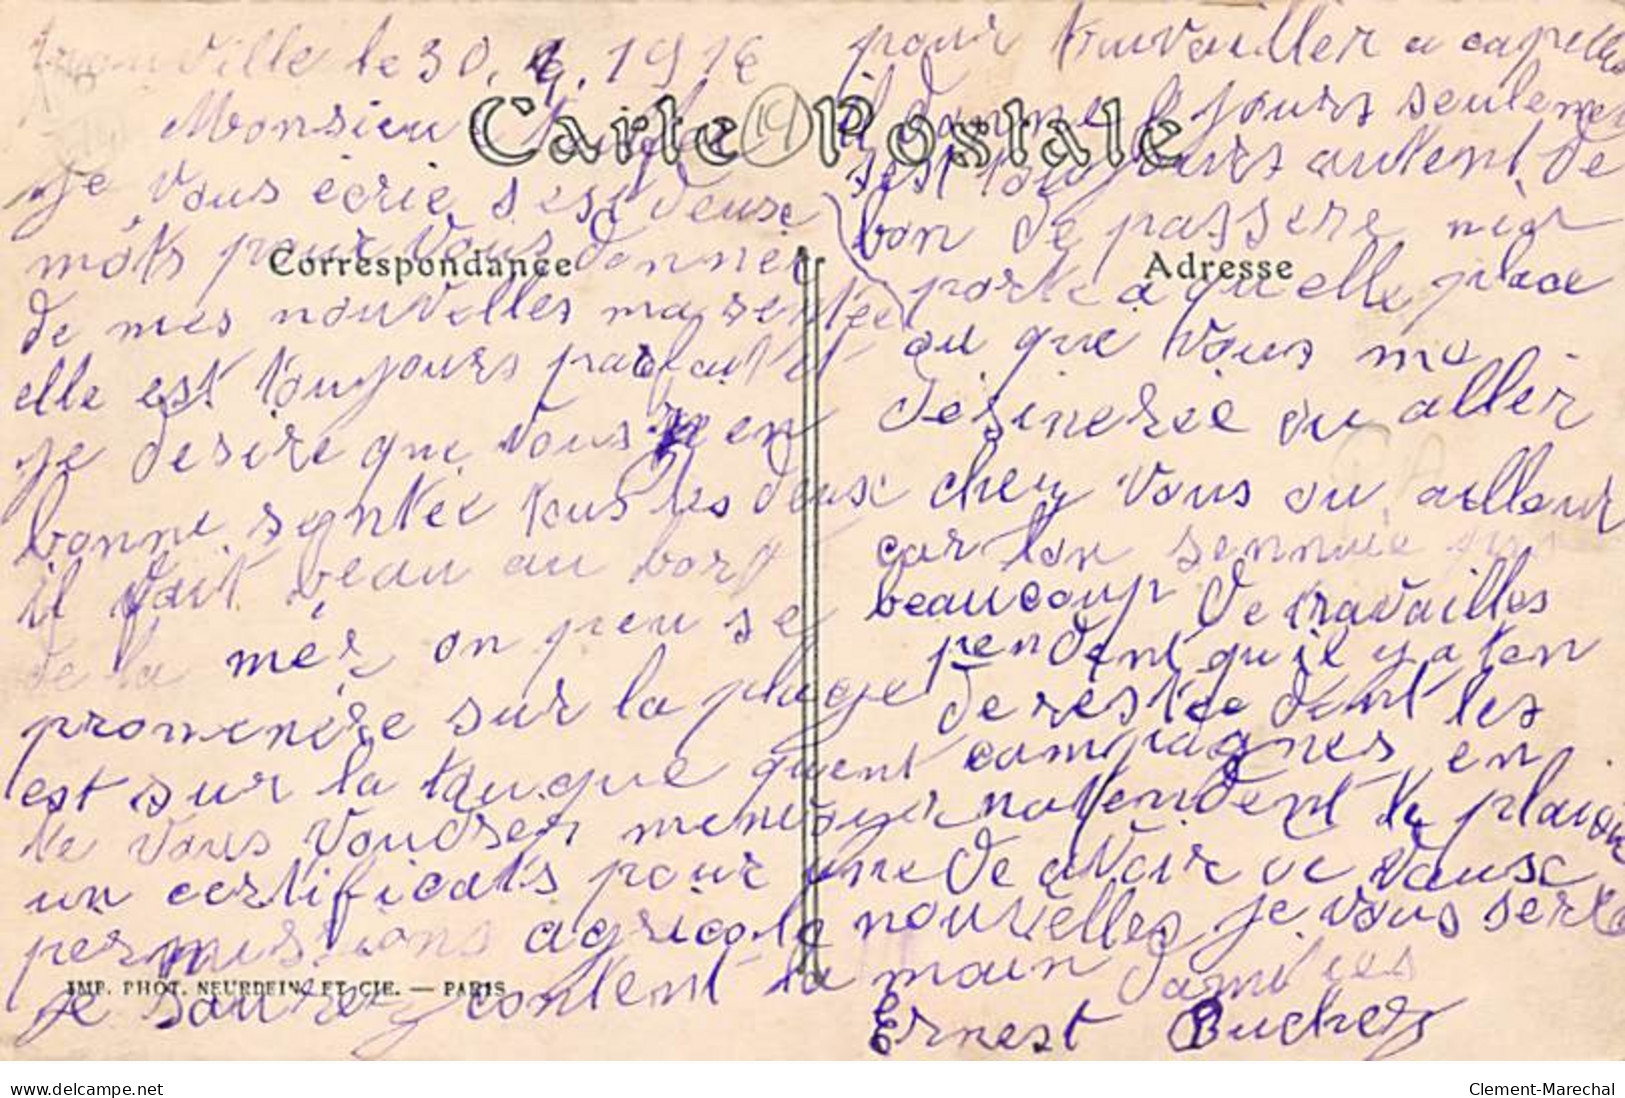 ville le 30. 4. 1916
Monsieur
Carte Postale
je vous écrie s'est deuse
mots pour vous donner
Correspondance
de mes nouvelles ma sentée
elle est toujours parfait et
je desire que vous en
bonne sentée tous les deux
il fait beau au bord
de la mér on peu se
promenére sur la plage
est sur la
te vous voudrer
un certificats pour une
permissions agricole
IMP. PHOT. NEURDEIN ET CIE. — PARIS
je sourez content
pour travailler a capelles
il donne 8 jours seulement
sest toujours autent de
bon de passere nier
Adresse
porte a quelle place
ou que vous me
desinerée ou aller
chez vous ou ailleur
car lon sennuie
beaucoup De travailles
pendent qu'il y a ten
de restée dent les
campagnes en
natendent le plaisir
De avoir vause
nouvelles je vous serre
la main Damitiés
Ernest Bucher
www.delcampe.net
Clement-Marechal